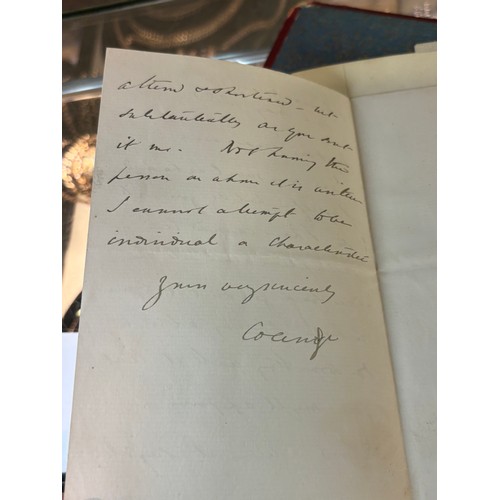 altered & shortened – but
substantially as you sent
it me. Not having the
person on whom it is written
I cannot attempt to be
individual or characteristic
Yours very sincerely